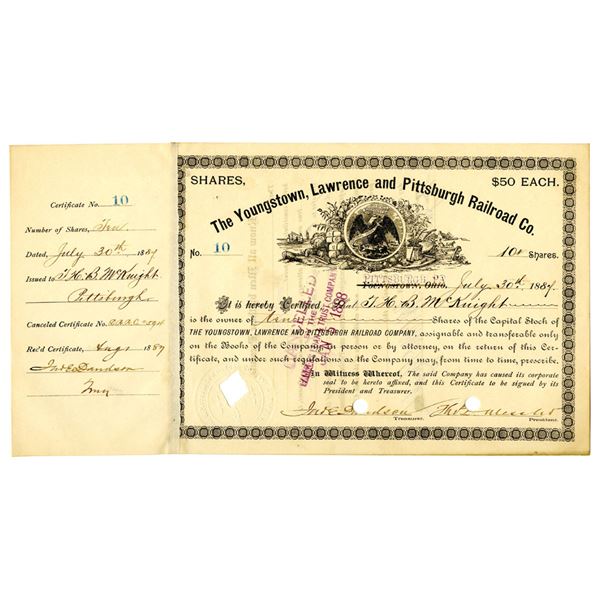 Certificate No. 10
Number of Shares, Ten
Dated, July 30th 1887
Issued to T. H. B. McKnight
Pittsburgh
Canceled Certificate No.
Rec'd Certificate, Aug 1887
Jno E Davidson
SHARES,
$50 EACH.
The Youngstown, Lawrence and Pittsburgh Railroad Co.
No. 10
10 Shares.
PITTSBURGH, PA
YOUNGSTOWN, OHIO, July 30th, 1887.
It is hereby Certified, that T. H. B. McKnight
is the owner of Shares of the Capital Stock of
THE YOUNGSTOWN, LAWRENCE AND PITTSBURGH RAILROAD COMPANY, assignable and transferable only
on the Books of the Company in person or by attorney, on the return of this Cer-
tificate, and under such regulations as the Company may, from time to time, prescribe.
In Witness Whereof, The said Company has caused its corporate
seal to be hereto affixed, and this Certificate to be signed by its
President and Treasurer.
Jno E Davidson
Treasurer.
President.
TRUST COMPANY
1888